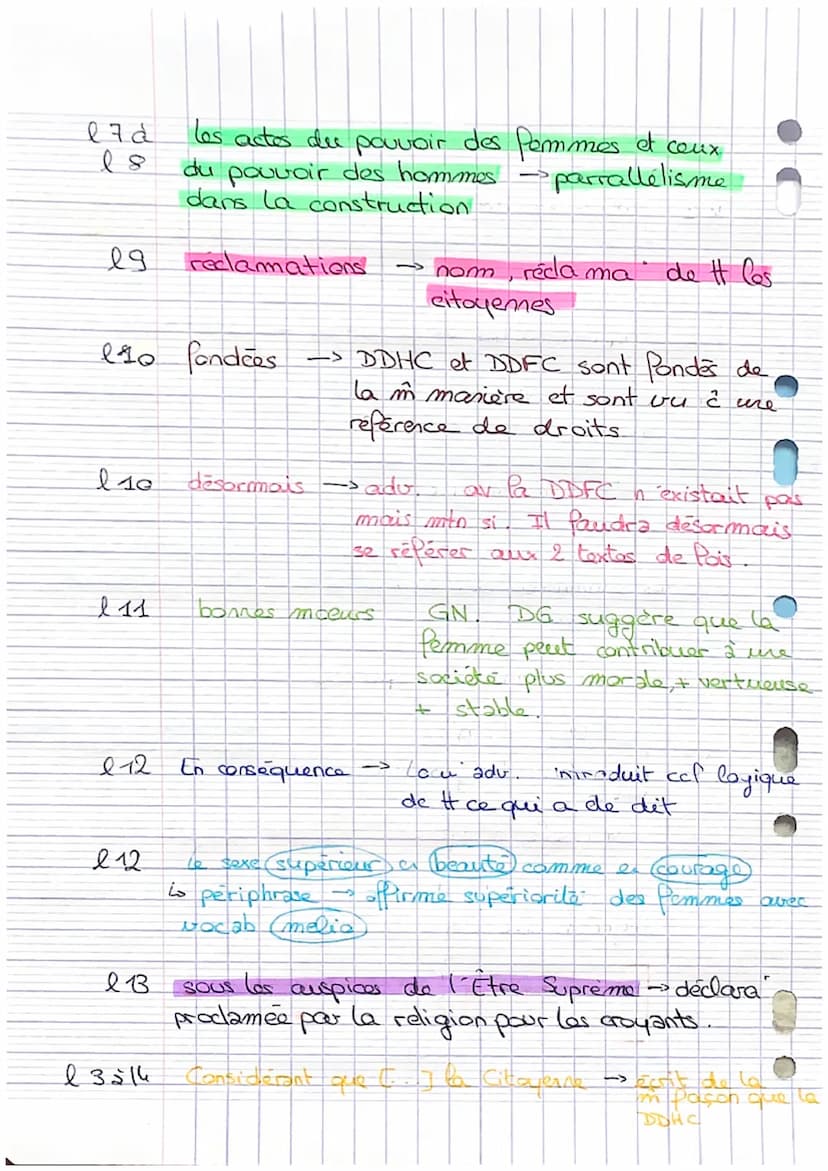 l 7 à les actes du pouvoir des femmes et ceux
l 8 du pouvoir des hommes → parrallélisme
dans la construction
l 9 réclamations → nom, réclama° de tt les
citoyennes
l 10 fondées → DDHC et DDFC sont fondés de
la m̂ manière et sont vu ĉ une
référence de droits
l 10 désormais → adv. av la DDFC n'existait pas
mais mtn si. Il faudra désormais
se référer aux 2 textes de lois.
l 11 bonnes moeurs GN. DG suggère que la
femme peut contribuer à une
société plus morale, + vertueuse
+ stable.
l 12 En conséquence → adv. introduit ccl logique
de tt ce qui a été dit
l 12 le sexe supérieur en beauté comme en courage
↳ périphrase → affirme supériorité des femmes avec
vocab mélio
l 13 sous les auspices de l'Être Suprême → déclara°
proclamée par la religion pour les croyants.
l 3 à 14 Considérant que [...] la Citoyenne → écrit de la
m̂ façon que la
DDHC